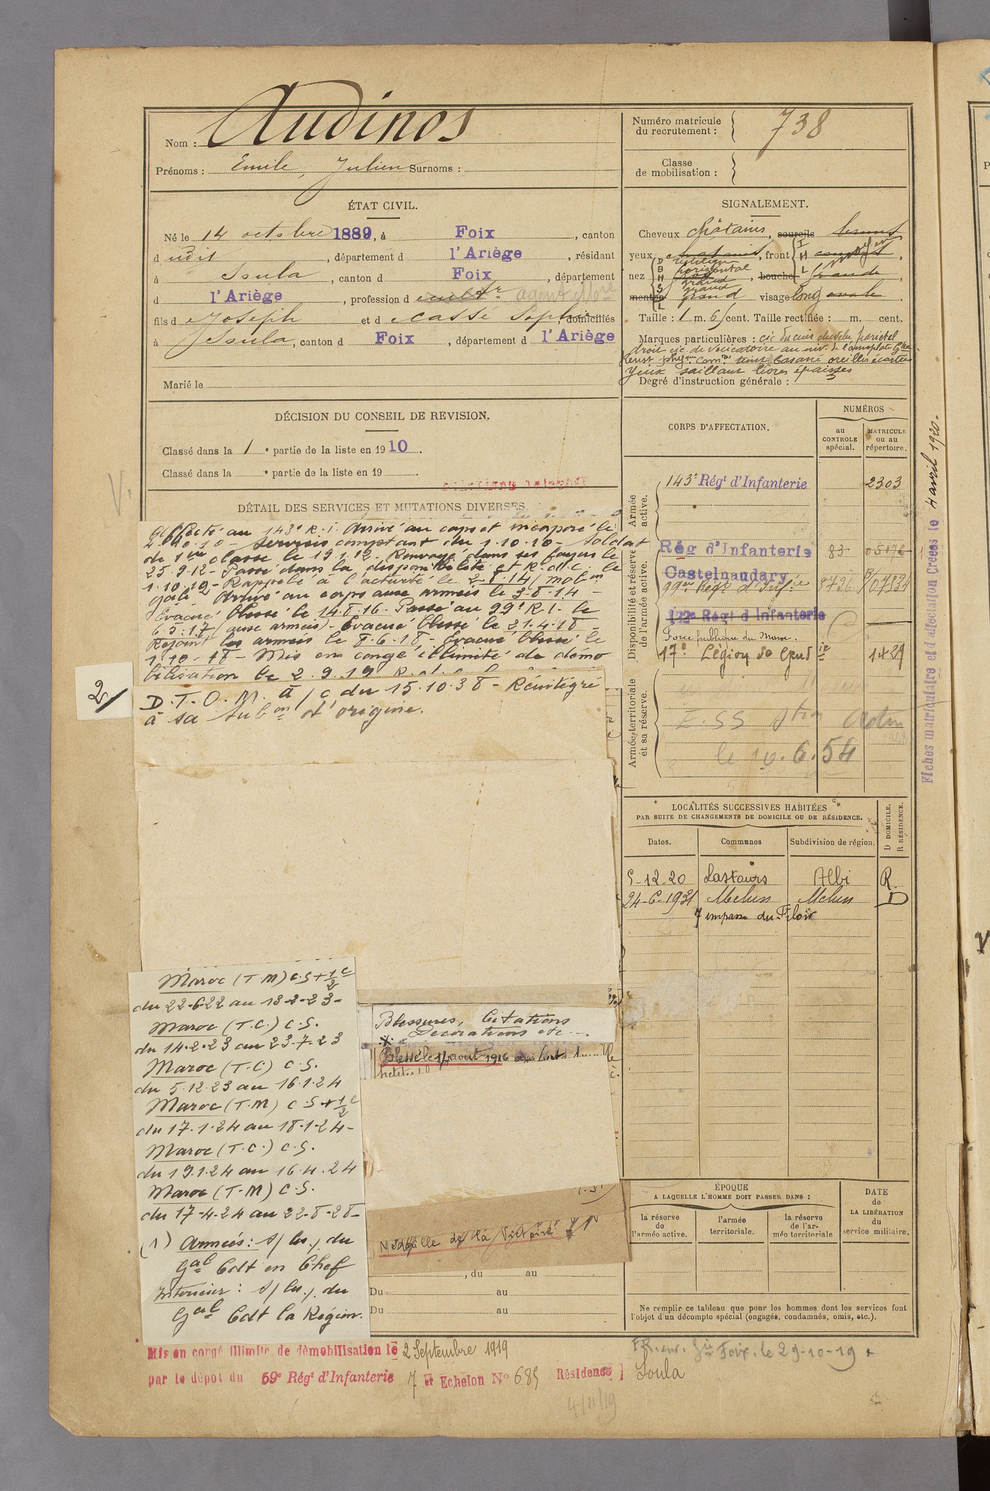 Nom : Audinos
Prénoms : Emile, Julien Surnoms :
Numéro matricule
du recrutement : 738
Classe
de mobilisation :
ÉTAT CIVIL.
Né le 14 octobre 1889, à Foix, canton
d udit, département d l'Ariège, résidant
à Soula, canton d Foix, département
d l'Ariège, profession d cultr. agent
fils d Joseph et d Cassé Sophie domiciliés
à Soula, canton d Foix, département d l'Ariège
Marié le
SIGNALEMENT.
Cheveux châtains, sourcils bruns
yeux châtains, front
nez, bouche grande
menton grand visage long ovale.
Taille : 1 m. 61 cent. Taille rectifiée : m. cent.
Marques particulières : cic. du cuir chevelu pariétal
droit cic de
yeux saillants lèvres épaisses
Degré d'instruction générale : 3
DÉCISION DU CONSEIL DE REVISION.
Classé dans la 1 e partie de la liste en 1910.
Classé dans la e partie de la liste en 19
DÉTAIL DES SERVICES ET MUTATIONS DIVERSES.
Affecté au 143e R.I. Arrivé au corps et incorporé le
10.10 - Services comptant du 1.10.10 - Soldat
de 1ère classe le 19.1.12 - Renvoyé dans ses foyers le
25.9.12 - Passé dans la disponibilité et R.d.l.c. le
1.10.12 - Rappelé à l'activité le 2-8-14 / mobon
gale Arrivé au corps aux armées le 3-8-14 -
Evacué blessé le 14.8.16 - Passé au 99e R.I. le
6.5.17 (aux armées) - Evacué blessé le 21.4.18 -
Rejoint les armées le 8.6.18 - Evacué blessé le
1.10.18 - Mis en congé illimité de démo
bilisation le 2.9.19
2/
D.T.O.M. à/c du 15.10.38 - Réintégré
à sa Subon d'origine.
Maroc (T.M) C.S + 1/2 C
du 22-6-22 au 13-2-23 -
Maroc (T.C.) C.S.
du 14-2-23 au 23-7-23
Maroc (T.C) C.S.
du 5.12.23 au 16.1.24
Maroc (T.M) C.S + 1/2 C
du 17.1.24 au 18.1.24 -
Maroc (T.C.) C.S.
du 19.1.24 au 16.4.24
Maroc (T.M) C.S.
du 17-4-24 au 22-8-28 -
(1) Armées : s/ les/ du
Gal Cdt en Chef
Intérieur : s/ les/ du
Gal Cdt la Région.
Blessures, Citations
Décorations etc...
Blessé le 14 août 1916
Médaille de la Victoire
, du au
Du au
Du au
CORPS D'AFFECTATION.
NUMÉROS
au
CONTROLE
spécial.
MATRICULE
ou au
répertoire.
Armée
active.
143e Régt d'Infanterie 2303
Disponibilité et réserve
de l'armée active.
Rég d'Infanterie 83
Castelnaudary
99e Régt d'Infie
122e Régt d'Infanterie
Force publique du Maroc.
17e Légion de Gend ie 1429
Armée territoriale
et sa réserve.
le 10.6.54
LOCALITÉS SUCCESSIVES HABITÉES
PAR SUITE DE CHANGEMENTS DE DOMICILE OU DE RÉSIDENCE.
Dates. Communes Subdivision de région. D DOMICILE. R RÉSIDENCE.
5-12-20 Lastours Albi R
24-6-1931 Melun Melun D
7 impasse du
ÉPOQUE
A LAQUELLE L'HOMME DOIT PASSER DANS :
la réserve
de
l'armée active.
l'armée
territoriale.
la réserve
de l'ar-
mée territoriale
DATE
de
LA LIBÉRATION
du
service militaire.
Ne remplir ce tableau que pour les hommes dont les services font
l'objet d'un décompte spécial (engagés, condamnés, omis, etc.).
Mis en congé illimité de démobilisation le 2 Septembre 1919
par le dépôt du 59e Régt d'Infanterie 7 er Echelon No 685 Résidence] Soula
Foix, le 29-10-19
4/11/19
Fiches matriculaire et d'affectation Créées le 4 avril 1920.